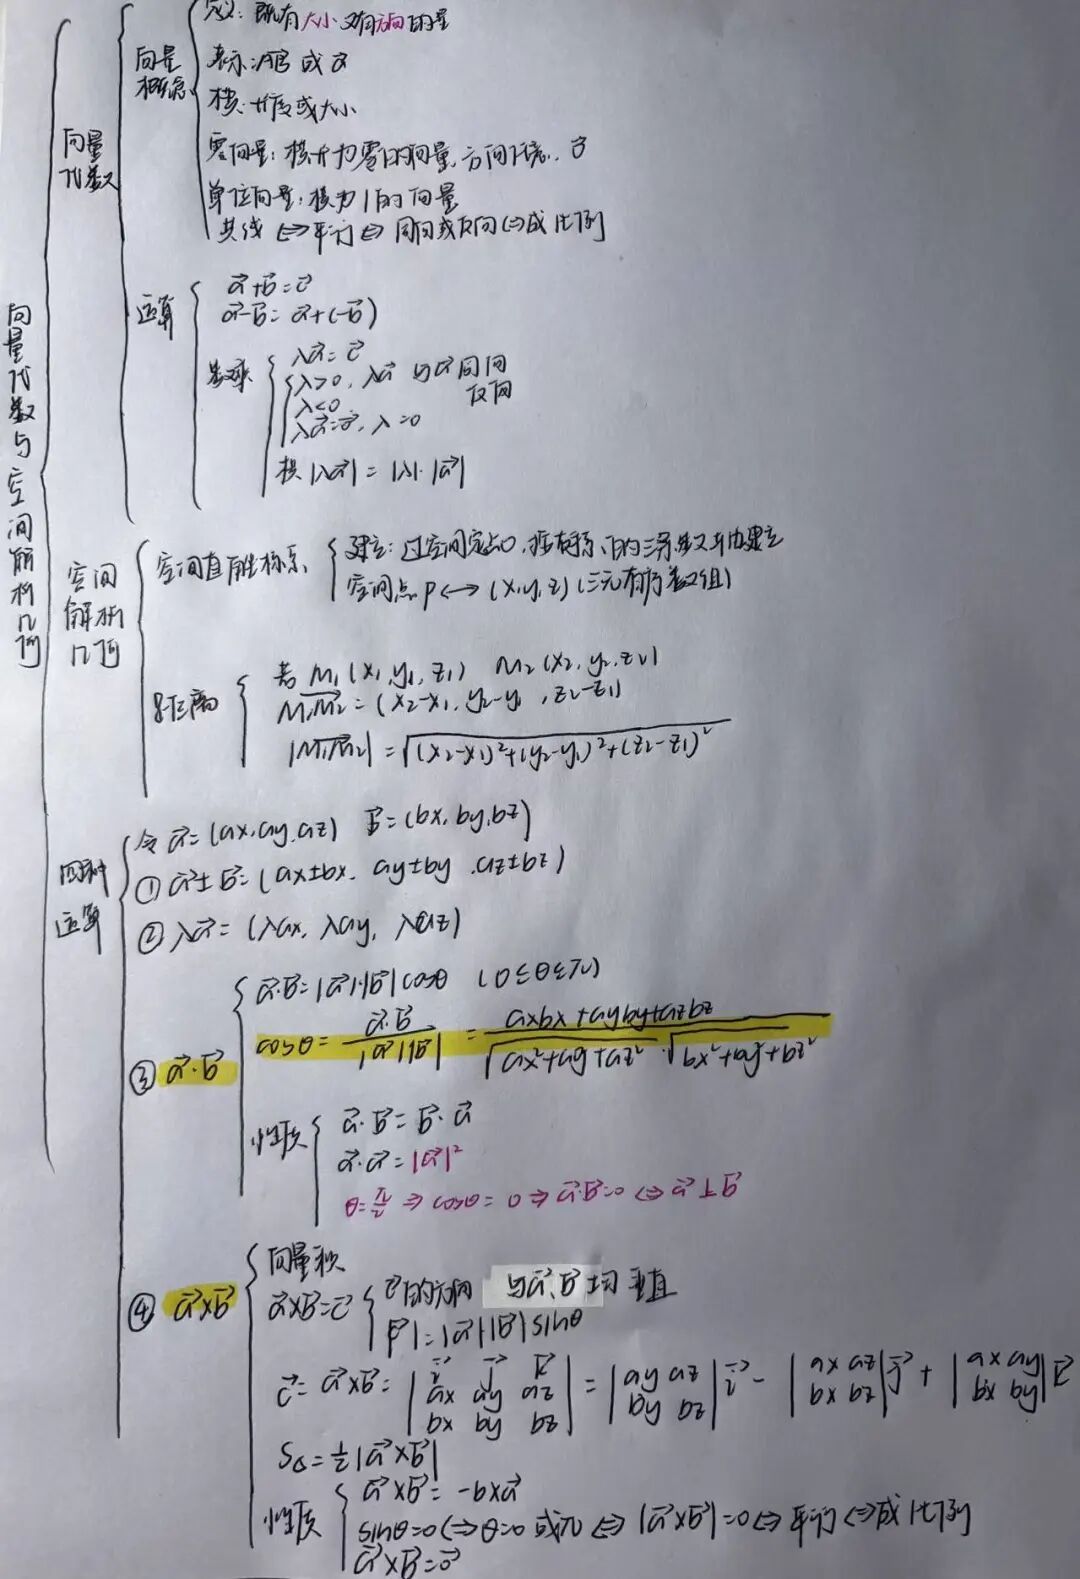 向量代数与空间解析几何
向量代数
向量概念
定义: 既有大小又有方向的量
表示: AB→ 或 a→
模: 长度或大小
零向量: 模长为零的向量, 方向任意. 0→
单位向量: 模为1的向量
共线 ⇔ 平行 ⇔ 同向或反向 ⇔ 成比例
运算
a→+b→=c→
a→-b→= a→+(-b→)
数乘
λa→= c→
λ>0, λa→ 与a→ 同向
λ<0 反向
λa→=0→, λ=0
模 |λa→| = |λ|·|a→|
空间解析几何
空间直角坐标系
建立: 过空间定点O,
空间点P ⟷ (x,y,z) (三元有序数组)
距离
若 M₁(x₁,y₁,z₁) M₂(x₂,y₂,z₂)
M₁M₂→ = (x₂-x₁, y₂-y₁, z₂-z₁)
|M₁M₂→| = √((x₂-x₁)²+(y₂-y₁)²+(z₂-z₁)²)
四种运算
令 a→= (ax,ay,az) b→=(bx,by,bz)
① a→± b→=(ax±bx, ay±by, az±bz)
② λa→= (λax, λay, λaz)
③ a→·b→
a→·b→=|a→|·|b→|cosθ (0≤θ≤π)
cosθ = a→·b→/|a→||b→| = (axbx+ayby+azbz)/(√(ax²+ay²+az²)·√(bx²+by²+bz²))
性质
a→·b→= b→·a→
a→·a→=|a→|²
θ=π/2 ⇒ cosθ= 0 ⇒ a→·b→=0 ⇔ a→⊥b→
④ a→×b→
向量积
a→×b→=c→
c→的方向 与a→、b→均垂直
|c→|=|a→||b→|sinθ
c→= a→×b→= |i→ j→ k→; ax ay az; bx by bz| = |ay az; by bz| i→ - |ax az; bx bz| j→ + |ax ay; bx by| k→
S△=½|a→×b→|
性质
a→×b→= -b×a→
sinθ=0 ⇔ θ=0 或π ⇔ |a→×b→|=0 ⇔ 平行 ⇔ 成比例
a→×b→=0→